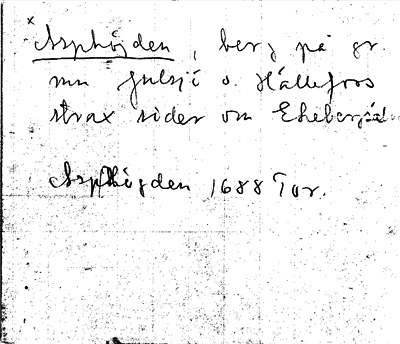 x Asphöjden, berg på gr.
mn Gulsjö o. Hällefors
strax söder om
Asphögden 1688 Tor.